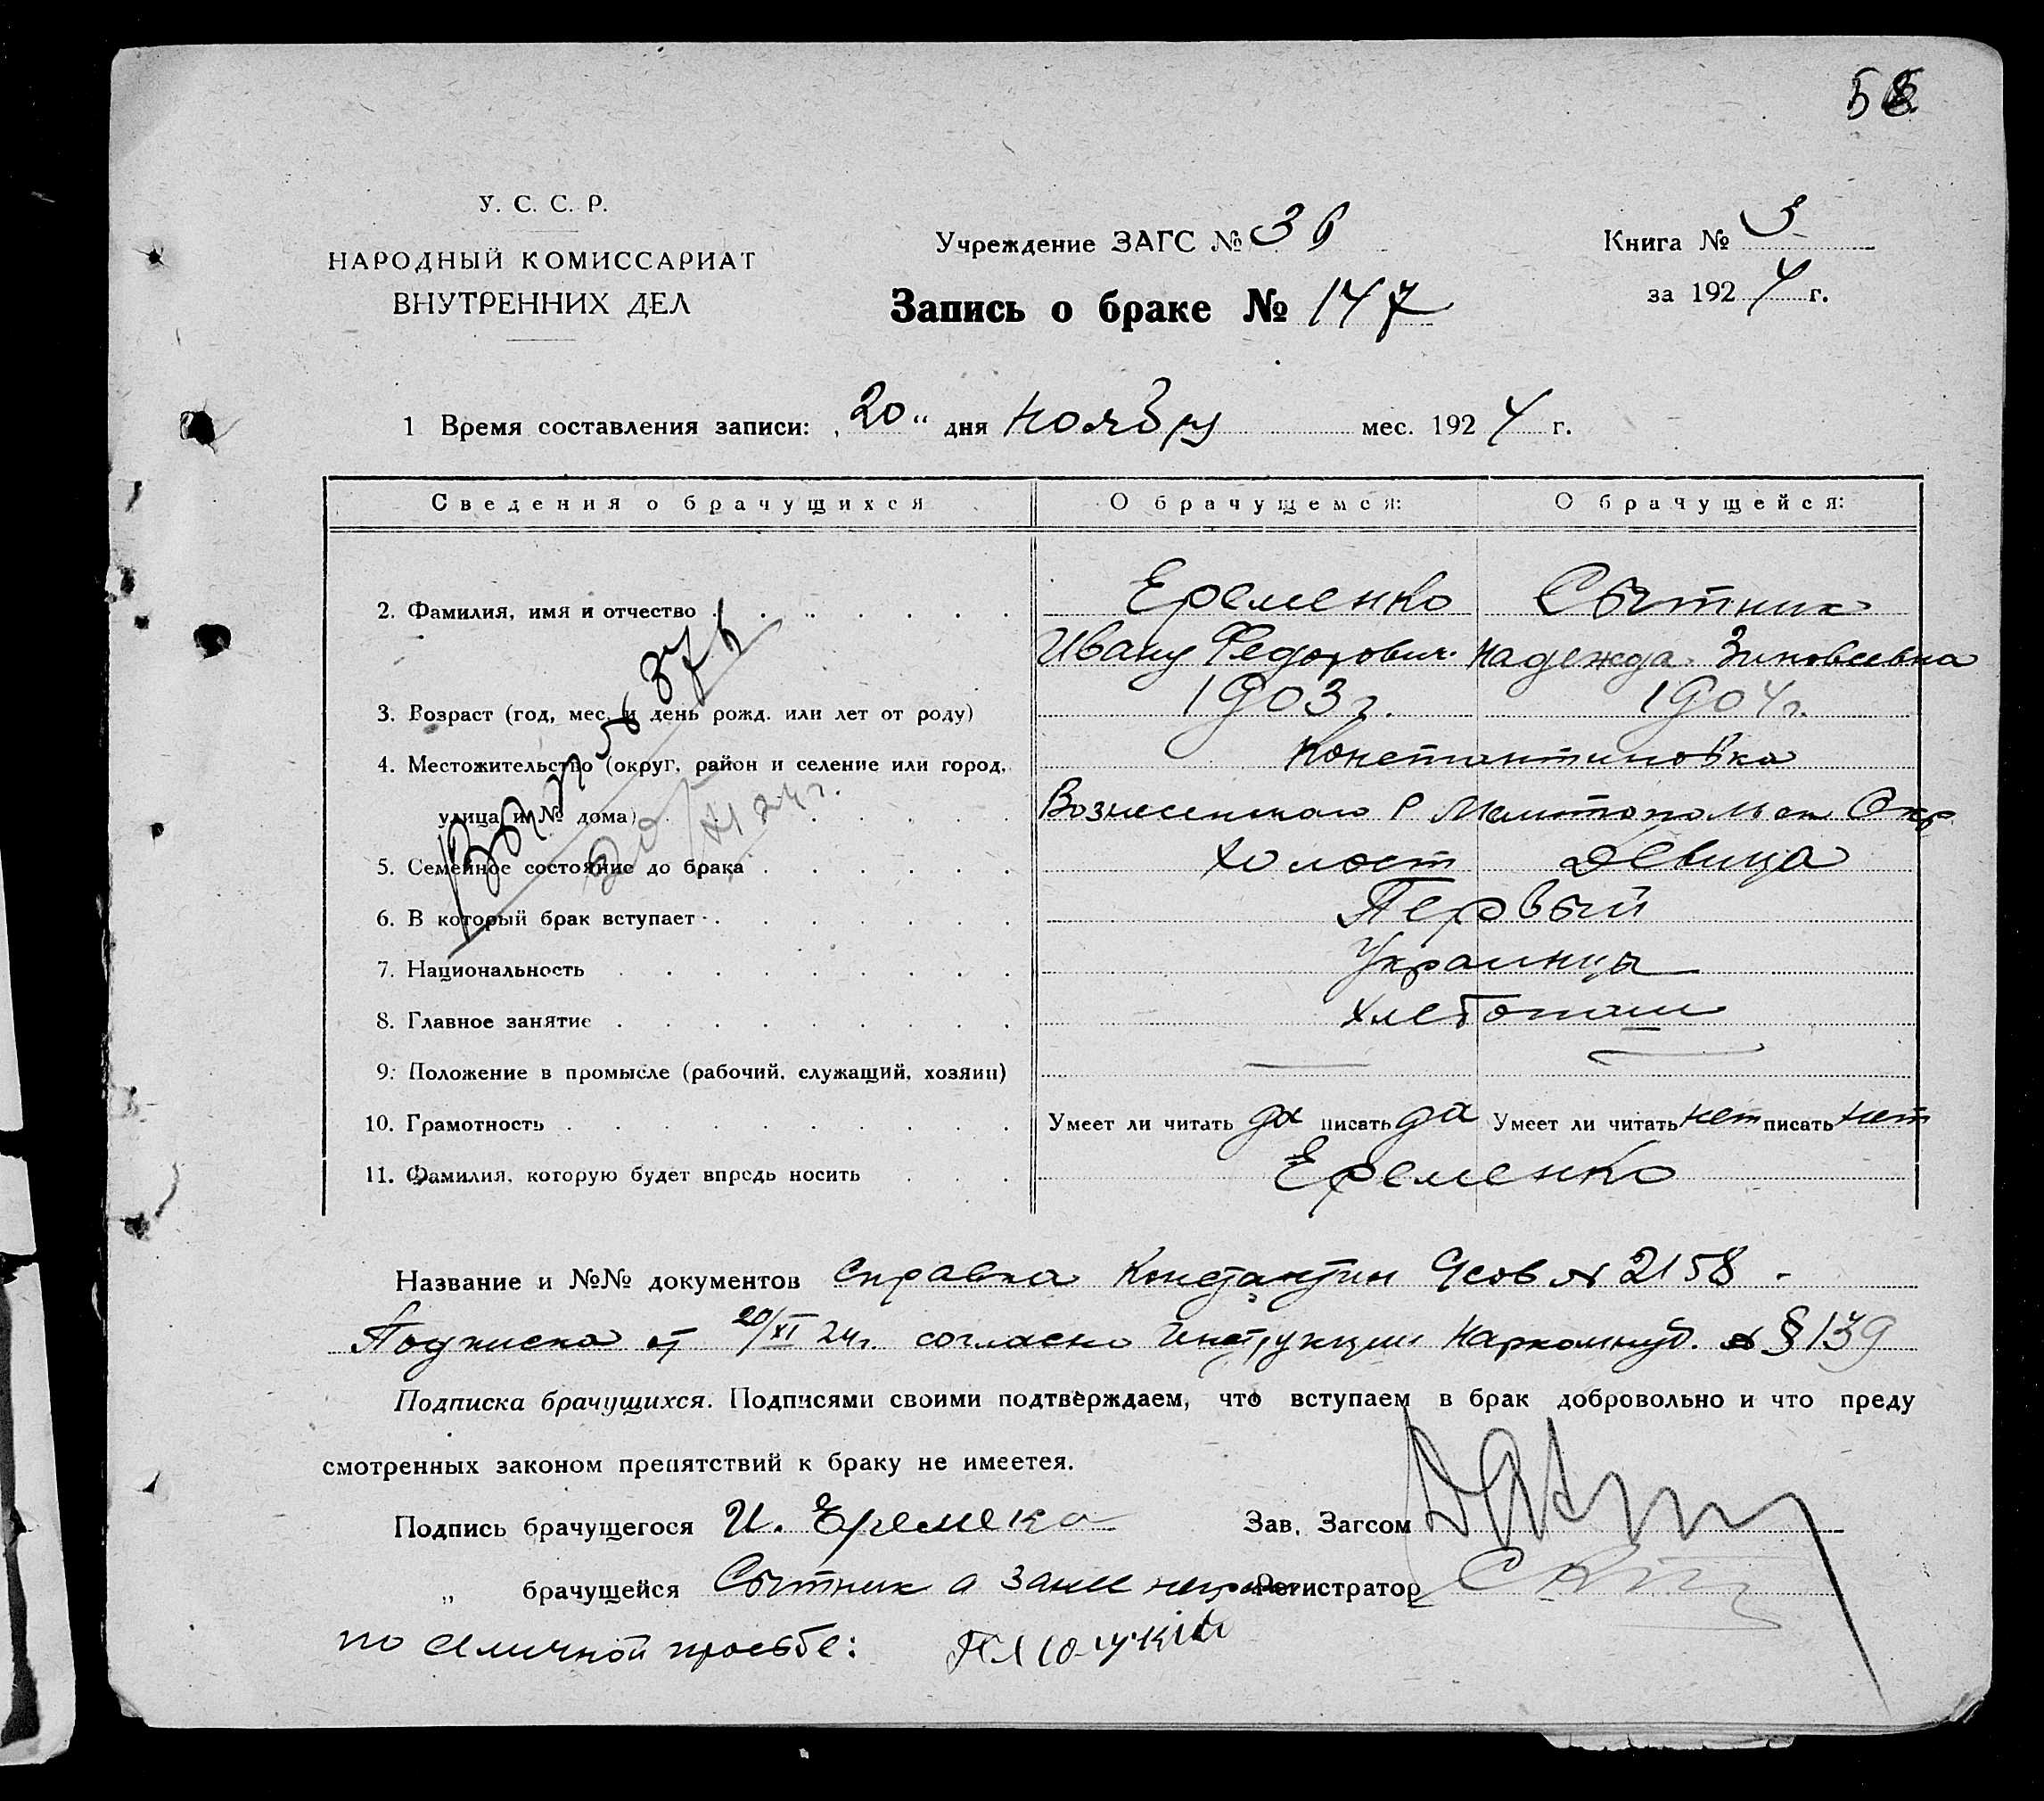 У. С. С. Р.
НАРОДНЫЙ КОМИССАРИАТ
ВНУТРЕННИХ ДЕЛ
Учреждение ЗАГС №
Книга № 3
за 1924 г.
Запись о браке № 147
1 Время составления записи: „20“ дня ноября мес. 1924 г.
Сведения о брачущихся О брачущемся: О брачущейся:
2. Фамилия, имя и отчество Еременко Сытник
Ивану Федорович Надежда Зиновеевна
3. Возраст (год, мес. и день рожд. или лет от роду) 1903 г. 1904 г.
4. Местожительство (округ, район и селение или город, Константиновка
улица и № дома) Вознесенского Р Мелитопольск Окр
5. Семейное состояние до брака холост девица
6. В который брак вступает Первый
7. Национальность Украинцы
8. Главное занятие хлебопаш
9. Положение в промысле (рабочий, служащий, хозяин)
10. Грамотность Умеет ли читать да писать да Умеет ли читать нет писать нет
11. Фамилия, которую будет впредь носить Еременко
20/XI 24 г.
Название и №№ документов справка Константин № 2158
Подписка от 20/XI 24 г. согласно инструкции Наркомвнуд. § 139
Подписка брачущихся. Подписями своими подтверждаем, что вступаем в брак добровольно и что преду
смотренных законом препятствий к браку не имеетея.
Подпись брачущегося И. Еремека Зав. Загсом
„ брачущейся Сытник а за нее неграм Регистратор
по личной просьбе: